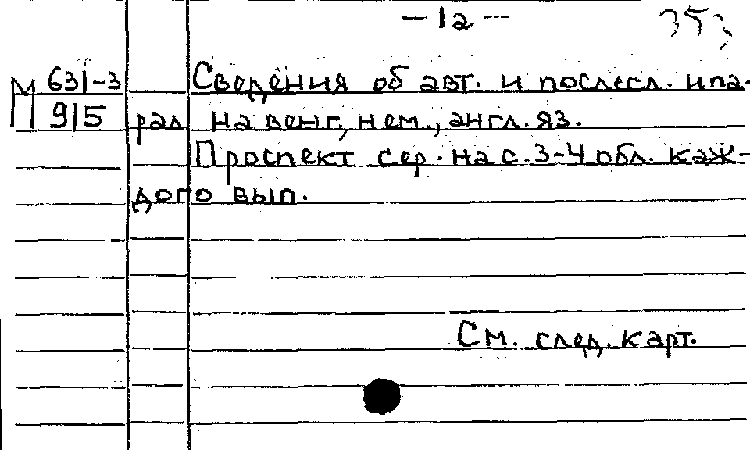 — 1а —
353
М 631-3
915
Сведения об авт. и послесл. и па-
рал на венг, нем., англ. яз.
Проспект сер. на с. 3-4 обл. каж-
дого вып.
См. след. карт.